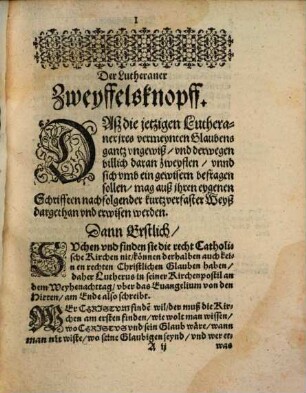 1
Der Lutheraner
Zweyffelsknopff.
DAß die jetzigen Luthera-
ner jres vermeynten Glaubens
gantz vngewiß / vnd derwegen
billich daran zweyflen / vnnd
sich vmb ein gewisern befragen
sollen / mag auß jhren eygenen
Schrifften nachfolgender kurtzverfaster Weyß
dargethan vnd erwisen werden.
Dann Erstlich /
SVchen vnd finden sie die recht Catholi-
sche Kirchen nie / können derhalben auch kei-
nen rechten Christlichen Glauben haben /
daher Lutherus in seiner Kirchenpostil an
dem Weyhenachttag / vber das Euangelium von den
Hirten / am Ende also schreibt.
WEr CHRISTVM findē wil / der muß die Kir-
chen am ersten finden / wie wolt man wissen /
wo CHRISTVS vnd sein Glaub wäre / wann
man nit wiste / wo seine Glaubigen seynd / vnd wer et-
A ij was